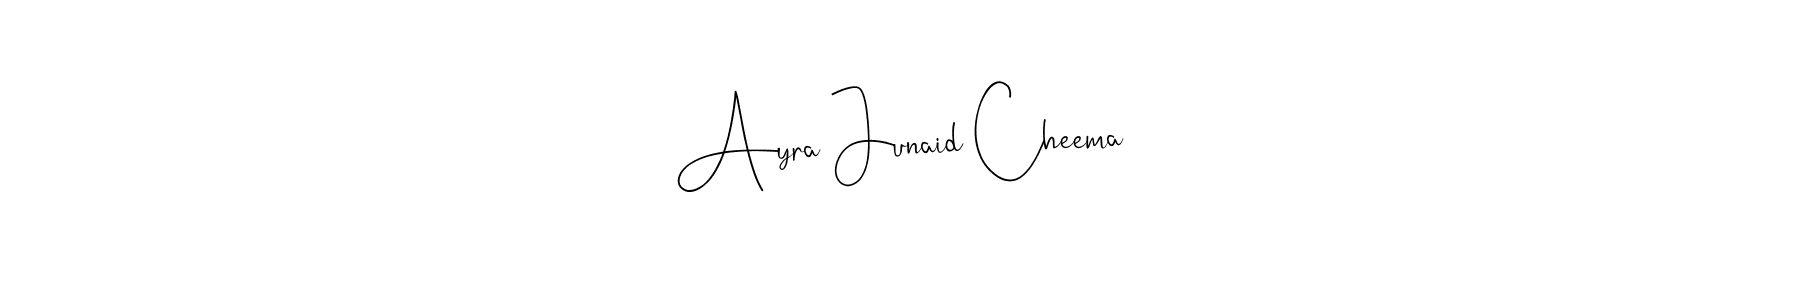 Ayra Junaid Cheema